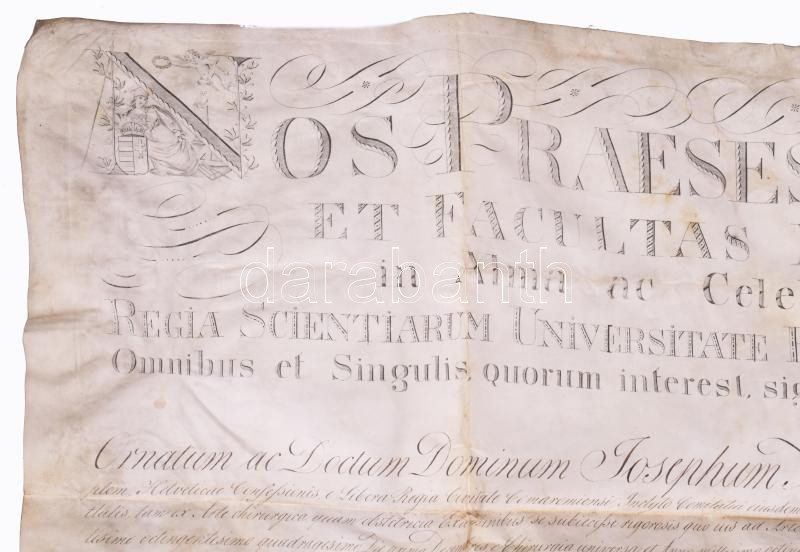 NOS PRAESES
ET FACULTAS
in Alma ac Cele
REGIA SCIENTIARUM UNIVERSITATE
Omnibus et Singulis, quorum interest, sig
darabanth
Ornatum ac Doctum Dominum Josephum
Helveticae Confessionis, e Libera Regia Civitate Comaromiensi, Inclyto Comitatui ejusdem
tam ex Arte chirurgica quam obstetricia Examinibus se subjecisse rigorosis
quadragesimo